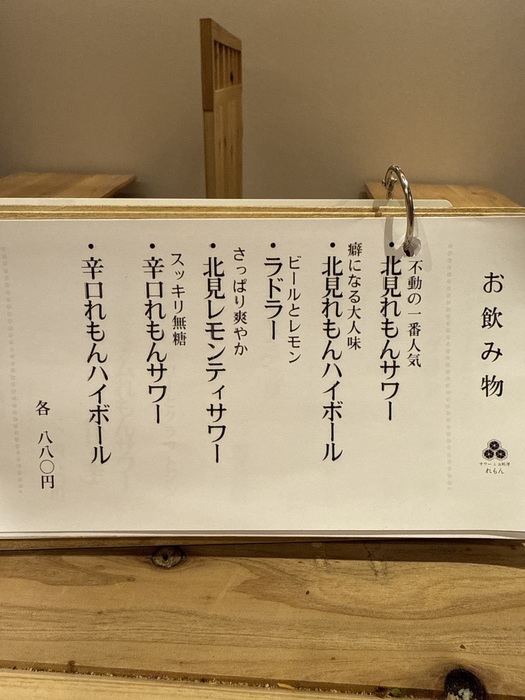 お飲み物
サワーとお料理
れもん
不動の一番人気
・北見れもんサワー
癖になる大人味
・北見れもんハイボール
ビールとレモン
・ラドラー
さっぱり爽やか
・北見レモンティサワー
スッキリ無糖
・辛口れもんサワー
・辛口れもんハイボール
各 八八〇円